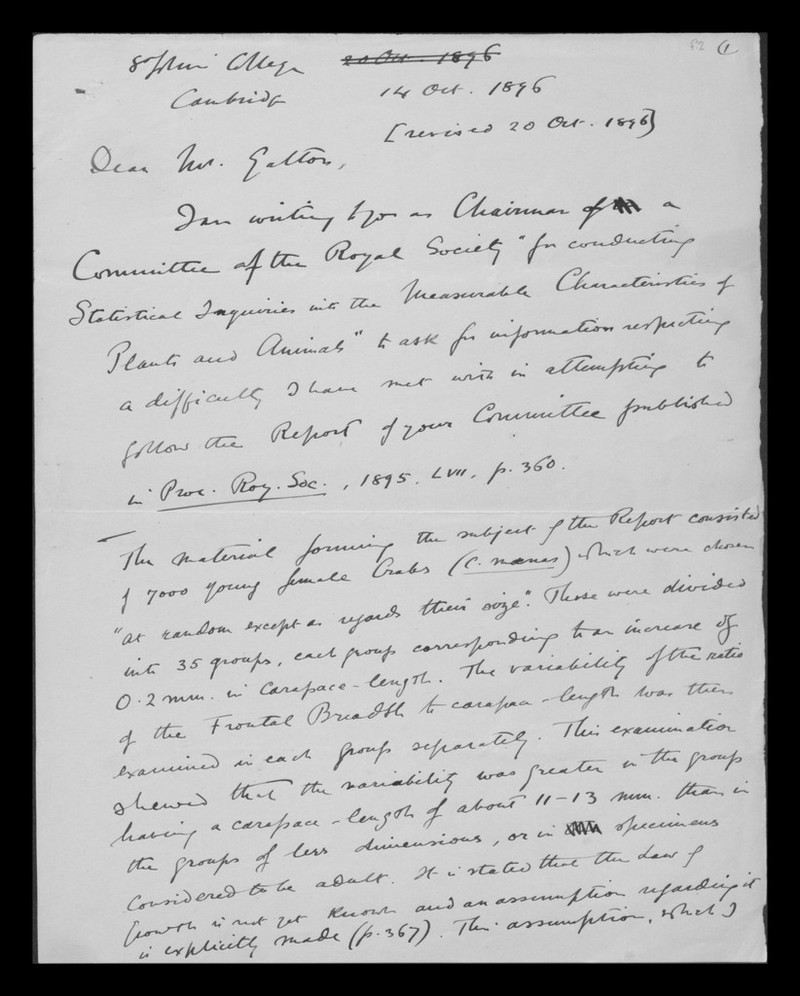 52 (1)
St John's College ~~20 Oct. 1896~~
Cambridge 14 Oct. 1896
[revised 20 Oct. 1896]
Dear Mr. Galton,
I am writing to you as Chairman of a
Committee of the Royal Society "for conducting
Statistical Inquiries into the Measurable Characteristics of
Plants and Animals" to ask for information respecting
a difficulty I have met with in attempting to
follow the Report of your Committee published
in Proc. Roy. Soc., 1895. LVII, p. 360.
The material forming the subject of the Report consisted
of 7000 young female Crabs (C. mænas) which were chosen
"at random except as regards their size". These were divided
into 35 groups, each group corresponding to an increase of
0.2 mm. in Carapace-length. The variability of the ratio
of the Frontal Breadth to carapace-length was then
examined in each group separately. This examination
shewed that the variability was greater in the groups
having a carapace-length of about 11-13 mm. than in
the groups of less dimensions, or in specimens
considered to be adult. It is stated that the Law of
Growth is not yet known and an assumption regarding it
is explicitly made (p. 367). This assumption, which I